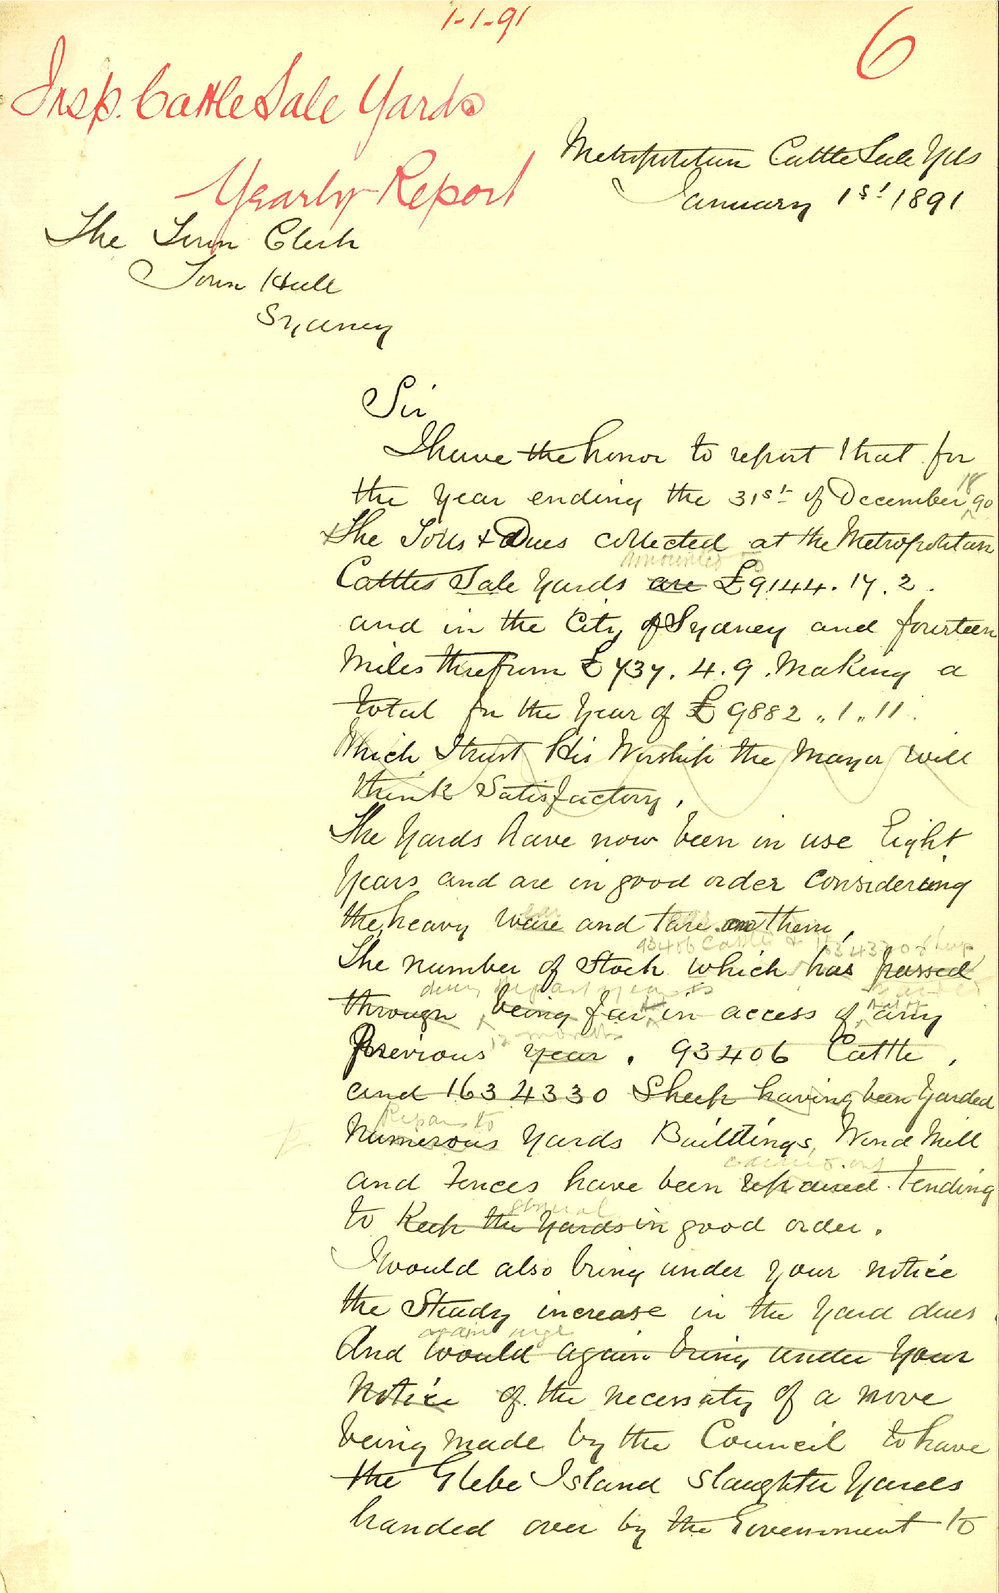 1-1-91
6
Insp. Cattle Sale Yards
Yearly Report
Metropolitan Cattle Sale Yds
January 1st 1891
The Town Clerk
Town Hall
Sydney
Sir
I have the honor to report that for
the year ending the 31st of December 18 90
The Tolls & Dues collected at the Metropolitan
amounted to
Cattles Sale Yards are £9144.17.2.
and in the City of Sydney and fourteen
Miles threfrom £737.4.9. Making a
total for the Year of £9882 ,, 1 ,, 11.
Which I trust His Worship the Mayor will
think Satisfactory.
The Yards have now been in use Eight
Years and are in good order considering
the heavy ware and tare on them,
93406 Cattle & 1634330 Sheep
The number of Stock which has passed
during the past year
through being far in access of any
12 months
Previous year. 93406 Cattle,
and 1634330 Sheep having been Yarded
Repairs to
Numerous Yards Buildings, Wind Mill
carried out
and Fences have been repaired. tending
general
to Keep the Yards in good order.
I would also bring under your notice
the Steady increase in the Yard dues
again urge
And would again bring under Your
Notice of the necessity of a move
being made by the Council to have
the Glebe Island Slaughter Yards
handed over by the Government to